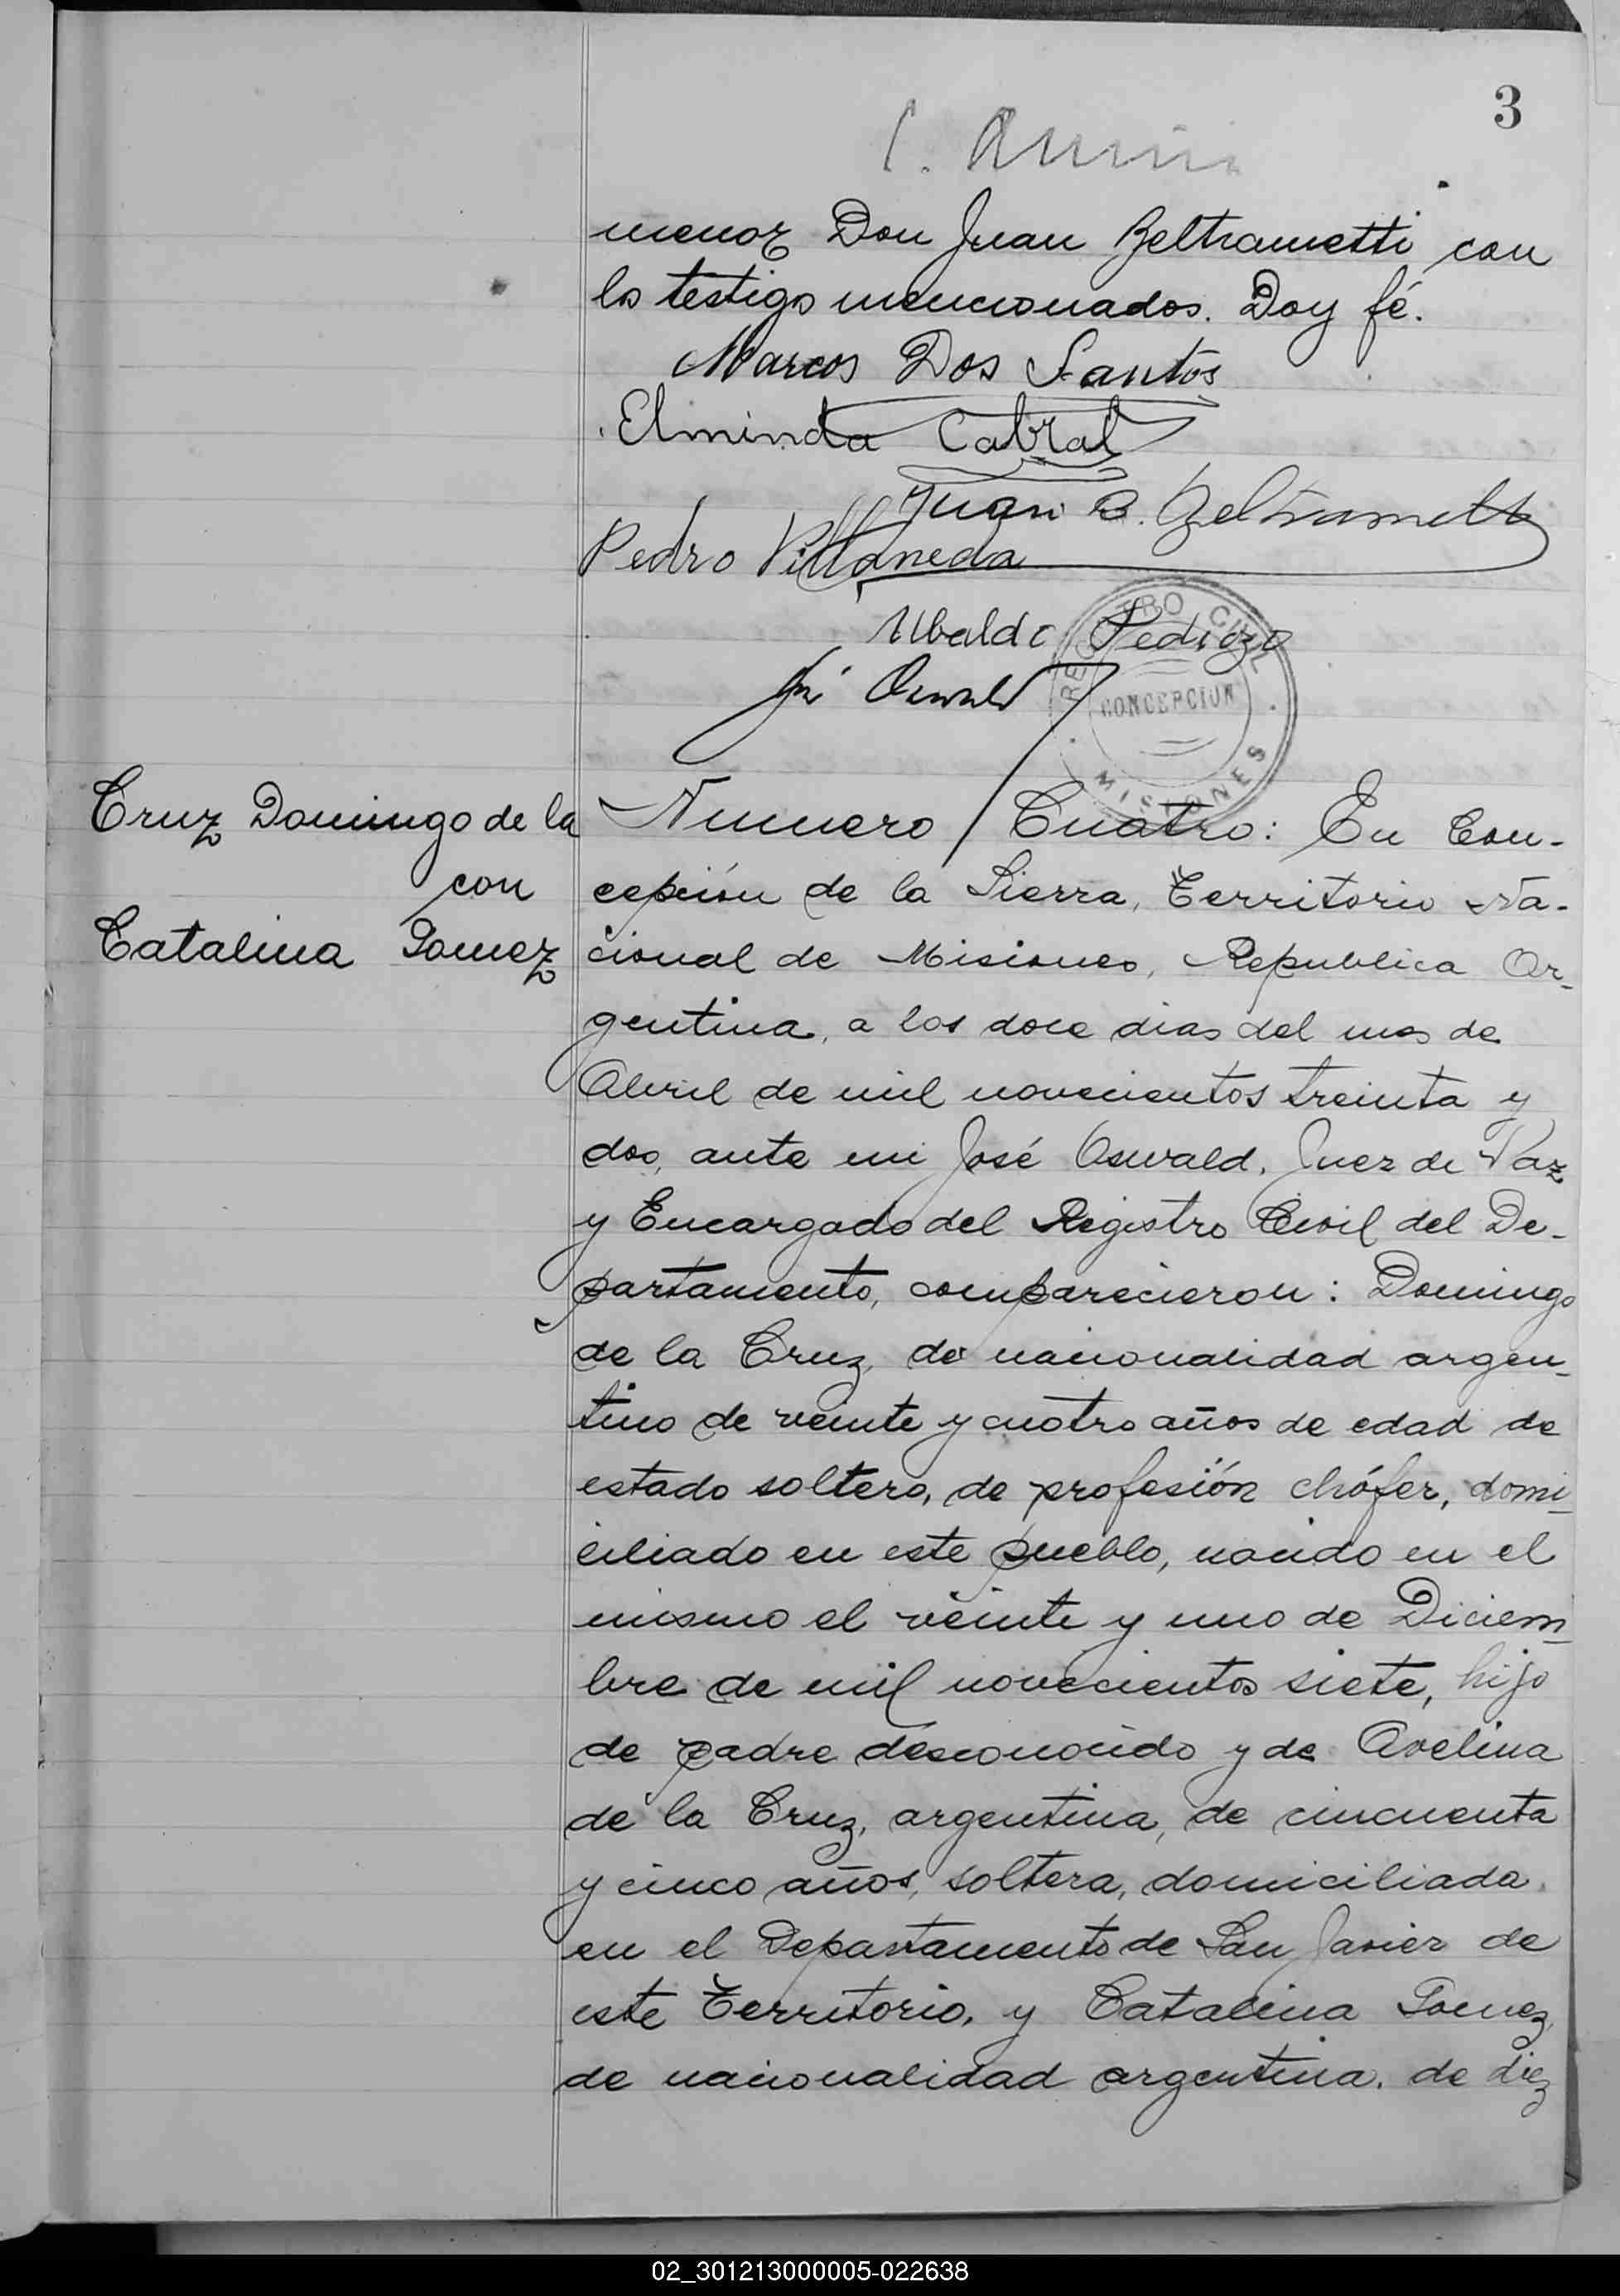 3
menor Don Juan Beltrametti con
lo testigo mencionados. Doy fé.
Marcos Dos Santos
Elminda Cabral
Juan B. Beltrametti
Pedro Villaneda
Ubaldo Pedrozo
José Oswald
REGISTRO CIVIL
CONCEPCION
MISIONES
Cruz Domingo de la
con
Catalina Gomez
Numero Cuatro: En Con-
cepción de la Sierra, Territorio Na-
cional de Misiones, Republica Ar-
gentina, a los doce dias del mes de
Abril de mil novecientos treinta y
dos, ante mi José Oswald, Juez de Paz
y Encargado del Registro Civil del De-
partamento, comparecieron: Domingo
de la Cruz, de nacionalidad argen-
tino de veinte y cuatro años de edad de
estado soltero, de profesión chófer, domi-
ciliado en este pueblo, nacido en el
mismo el veinte y uno de Diciem-
bre de mil novecientos siete, hijo
de padre desconocido y de Avelina
de la Cruz, argentina, de cincuenta
y cinco años, soltera, domiciliada
en el Departamento de San Javier de
este Territorio, y Catalina Gomez,
de nacionalidad argentina, de diez
02_301213000005-022638